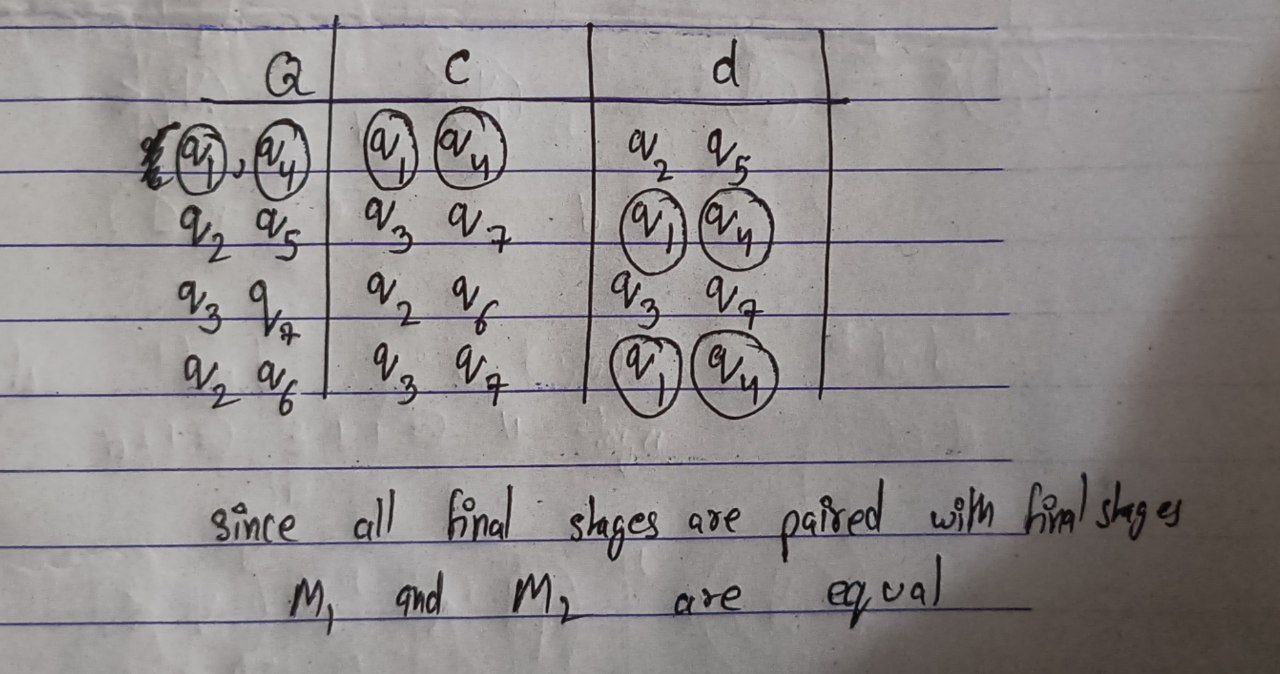 Q C d
q1, q4 q1 q4 q2 q5
q2 q5 q3 q7 q1 q4
q3 q7 q2 q6 q3 q7
q2 q6 q3 q7 q1 q4
since all final stages are paired with final stages
M1 and M2 are equal